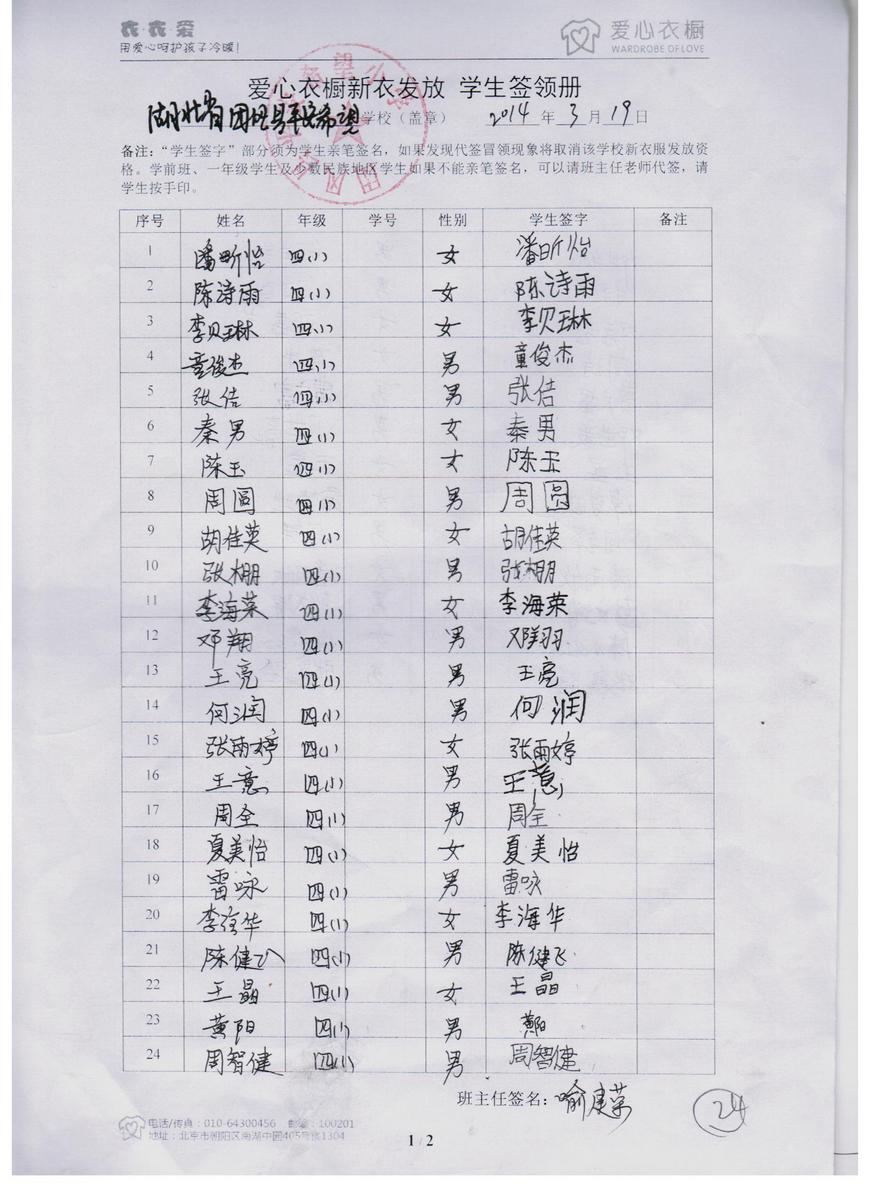 衣·衣·爱
用爱心呵护孩子冷暖!
爱心衣橱
WARDROBE OF LOVE
爱心衣橱新衣发放 学生签领册
湖北省团风县 希望学校（盖章） 2014年3月19日
备注：“学生签字”部分须为学生亲笔签名，如果发现代签冒领现象将取消该学校新衣服发放资
格。学前班、一年级学生及少数民族地区学生如果不能亲笔签名，可以请班主任老师代签，请
学生按手印。
序号 姓名 年级 学号 性别 学生签字 备注
1 潘昕怡 四(1) 女 潘昕怡
2 陈诗雨 四(1) 女 陈诗雨
3 李贝琳 四(1) 女 李贝琳
4 童俊杰 四(1) 男 童俊杰
5 张佶 四(1) 男 张佶
6 秦男 四(1) 女 秦男
7 陈玉 四(1) 女 陈玉
8 周圆 四(1) 男 周圆
9 胡佳英 四(1) 女 胡佳英
10 张棚 四(1) 男 张棚
11 李海荣 四(1) 女 李海荣
12 邓翔 四(1) 男 邓翔
13 王亮 四(1) 男 王亮
14 何润 四(1) 男 何润
15 张雨婷 四(1) 女 张雨婷
16 王意 四(1) 男 王意
17 周全 四(1) 男 周全
18 夏美怡 四(1) 女 夏美怡
19 雷咏 四(1) 男 雷咏
20 李海华 四(1) 女 李海华
21 陈健飞 四(1) 男 陈健飞
22 王晶 四(1) 女 王晶
23 黄阳 四(1) 男 黄阳
24 周智健 四(1) 男 周智健
班主任签名：喻建荣
24
电话/传真：010-64300456 邮编：100201
地址：北京市朝阳区南湖中园405号楼1304
1 / 2